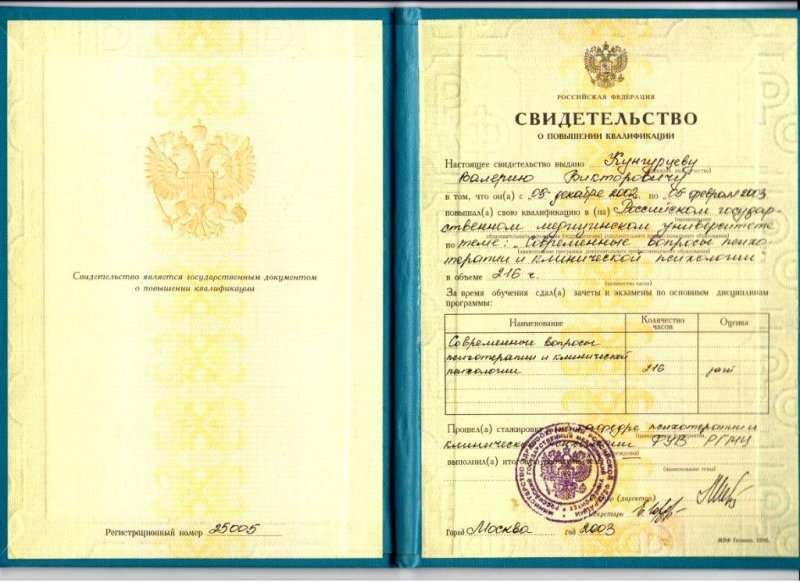 Свидетельство является государственным документом
о повышении квалификации
Регистрационный номер 25005
РОССИЙСКАЯ ФЕДЕРАЦИЯ
СВИДЕТЕЛЬСТВО
О ПОВЫШЕНИИ КВАЛИФИКАЦИИ
Настоящее свидетельство выдано Кунгурцеву
Валерию Викторовичу
в том, что он(а) с 05 декабря 2002 по 05 февраля 2003
повышал(а) свою квалификацию в (на) Российском государ-
ственном медицинском университете
по теме: "Современные вопросы психо-
терапии и клинической психологии"
в объеме 216 ч.
(количество часов)
За время обучения сдал(а) зачеты и экзамены по основным дисциплинам
программы:
Наименование Количество часов Оценка
Современные вопросы
психотерапии и клинической
психологии 216
Прошел(а) стажировку кафедре психотерапии и
клинической психологии ФУВ РГМУ
выполнил(а)
(наименование темы)
(директор)
Секретарь
Город Москва год 2003